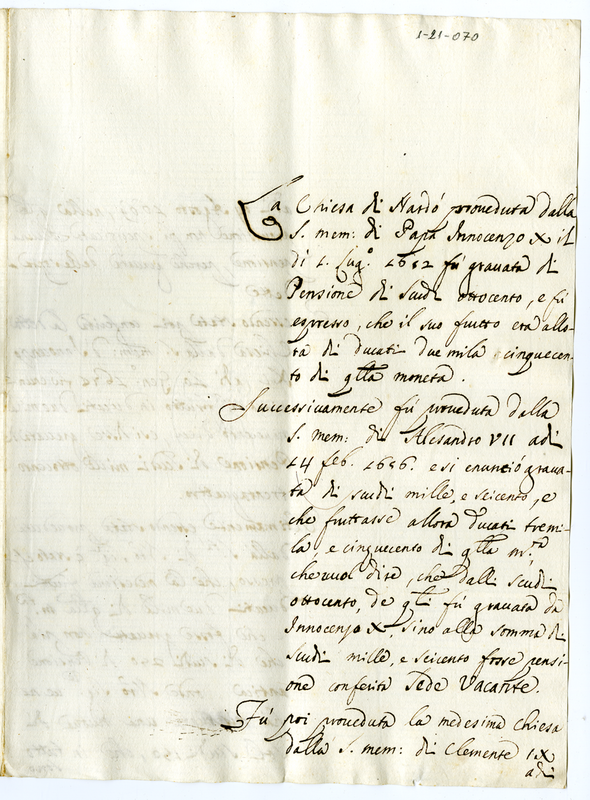 1-21-070
La Chiesa di Nardó proveduta dalla
S. mem: di Papa Innocenzo X il
di 1. Lug.º 1652 fú gravata di
Pensione di scudi ottocento, e fú
espresso, che il suo frutto era allo-
ra di ducati due mila cinquecen-
to di qlla moneta.
Successivamente fú proveduta dalla
S. mem: di Alesandro VII adi
14 feb. 1656. e si enunció grava-
ta di scudi mille, e seicento, e
che fruttasse allora ducati tremi-
la, e cinquecento di qlla m.ta
che vuol dire, che dalli scudi
ottocento, de qli fú gravata da
Innocenzo X. sino alla somma di
scudi mille, e seicento fosse pensi-
one conferita Sede Vacante.
Fú poi proveduta la medesima chiesa
dalla S. mem: di Clemente IX
adi